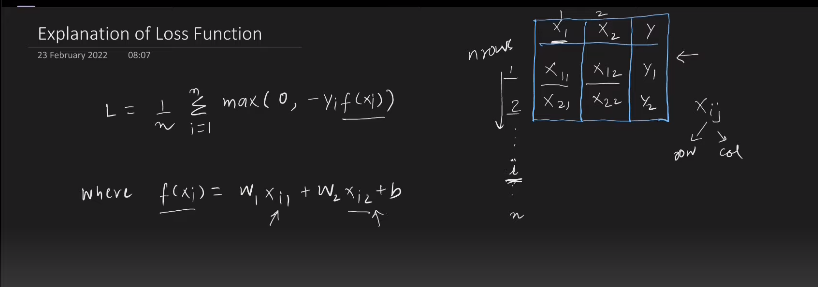 Explanation of Loss Function
23 February 2022 08:07
L = 1/n Σ i=1 n max(0, -yi f(xi))
where f(xi) = w1 xi1 + w2 xi2 + b
1 2
x1 x2 y
n rows
1 x11 x12 y1
2 x21 x22 y2
i
n
xij
row col